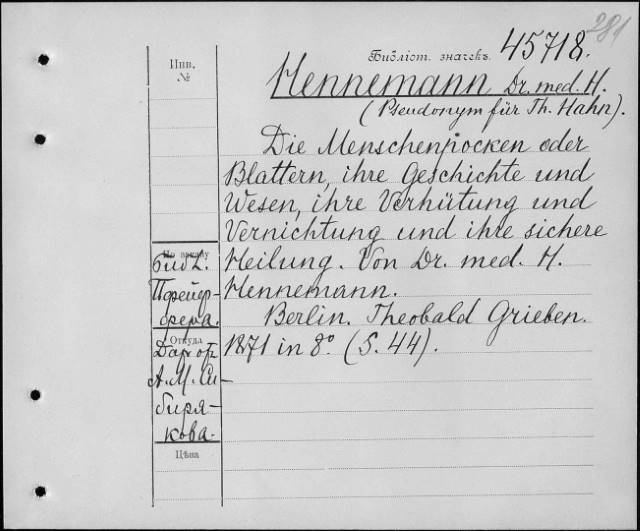 281
Библіот. значекъ 45718.
Инв.
№
Hennemann Dr. med. H.
(Pseudonym für Th. Hahn).
Die Menschenpocken oder
Blattern, ihre Geschichte und
Wesen, ihre Verhütung und
Vernichtung und ihre sichere
Heilung. Von Dr. med. H.
Hennemann.
Berlin. Theobald Grieben.
1871 in 8° (S. 44).
Библ.
Пфейф-
фера.
Откуда
Дар от
А. М. Си-
биря-
кова.
Цѣна